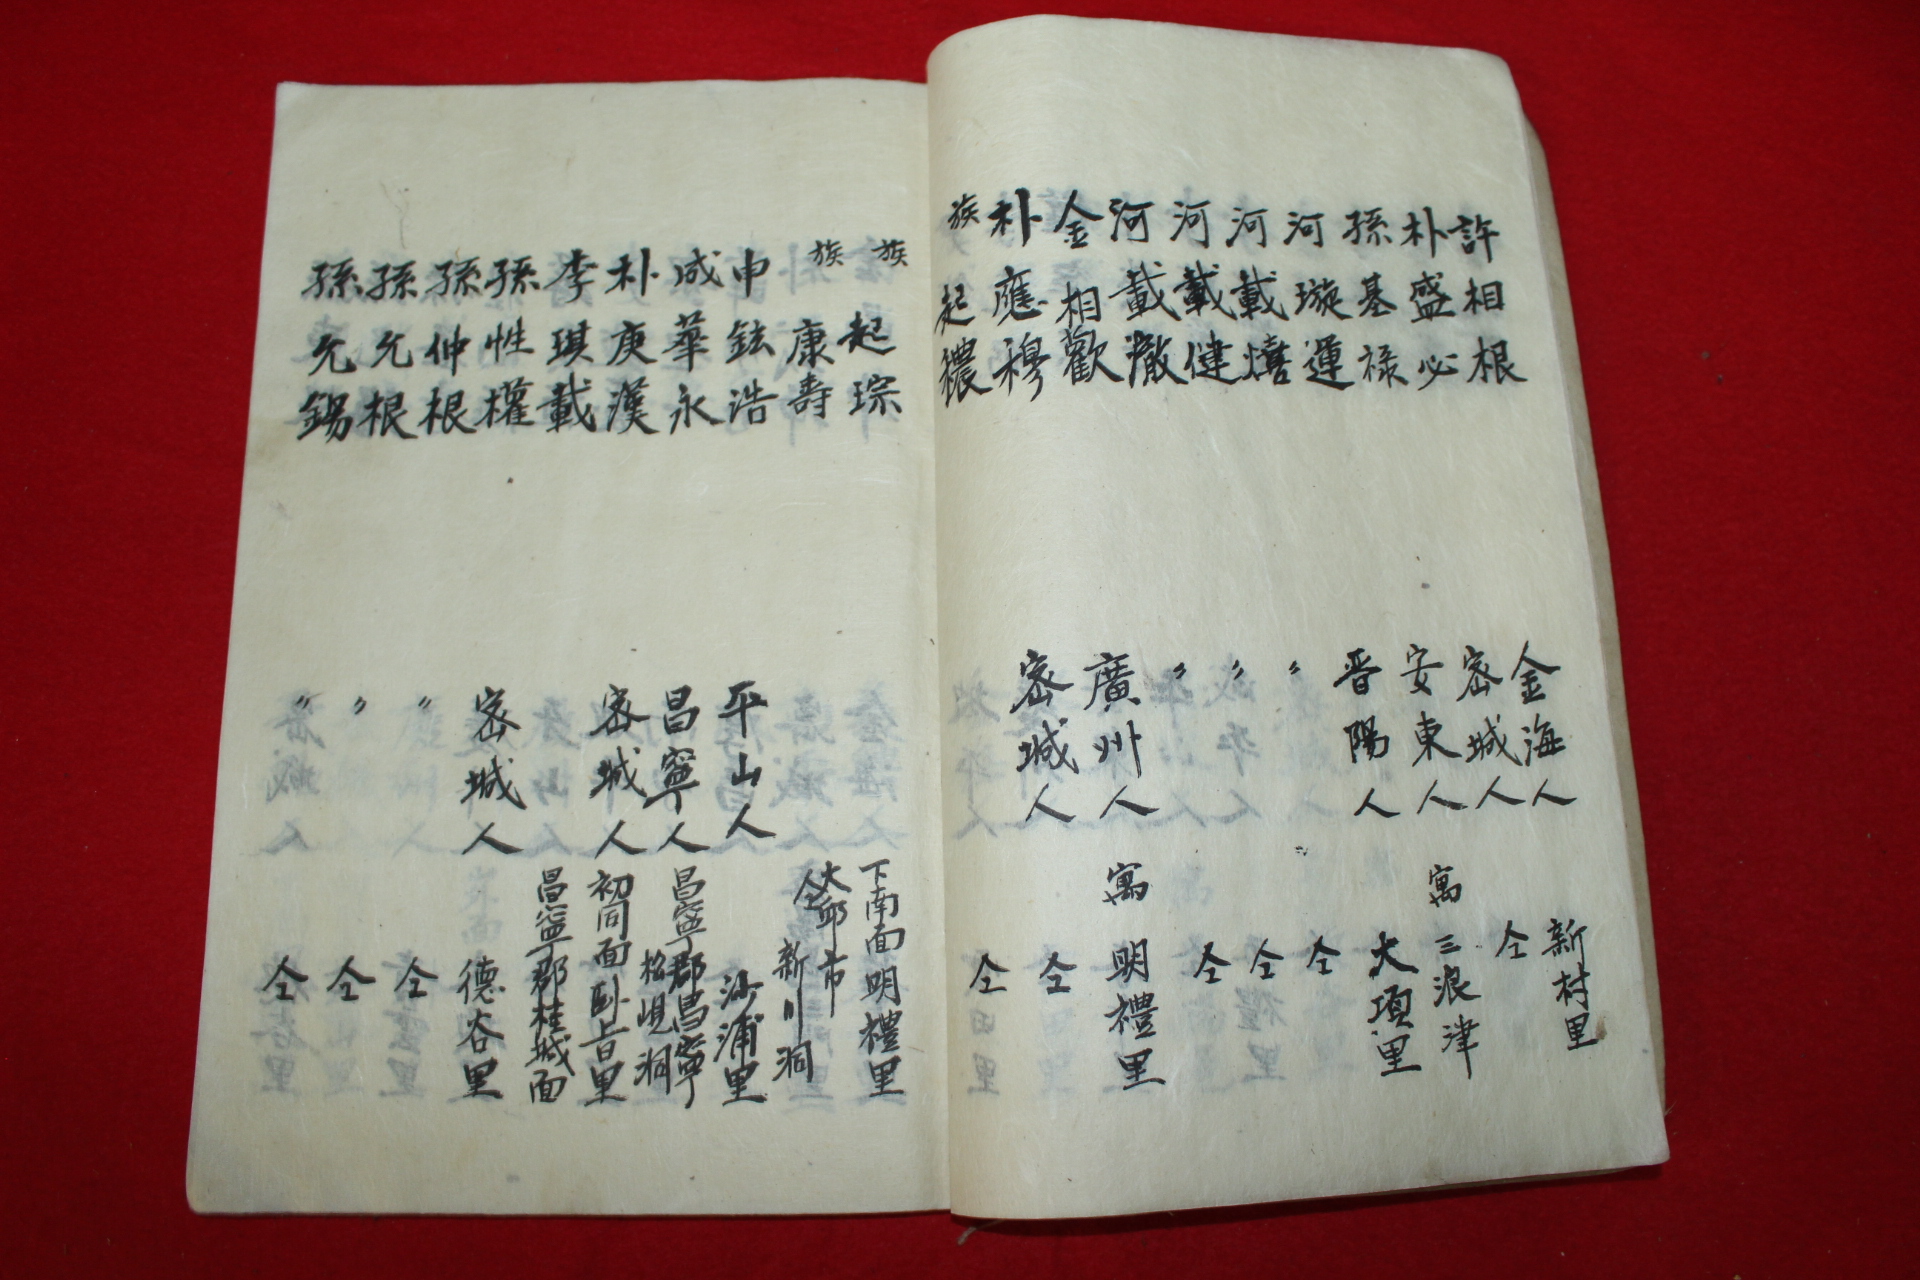 許相根 金海人 新村里
朴盛必 密城人 仝
孫基祿 安東人 寓三浪津
河璇運 晋陽人 大項里
河載熺 〃 仝
河載健 〃 仝
河載澈 〃 仝
金相歡 廣州人 寓明禮里
朴應穆 密城人 仝
族起穠 仝
族起琮 下南面明禮里
族康壽 大邱市仝新川洞
申鉉浩 平山人 沙浦里
成華永 昌寧人 昌寧郡昌寧松峴洞
朴庚漢 密城人 初同面卧旨里
李琪載 昌寧郡桂城面
孫性權 密城人 德谷里
孫仲根 〃 仝
孫允根 〃 仝
孫允錫 〃 仝